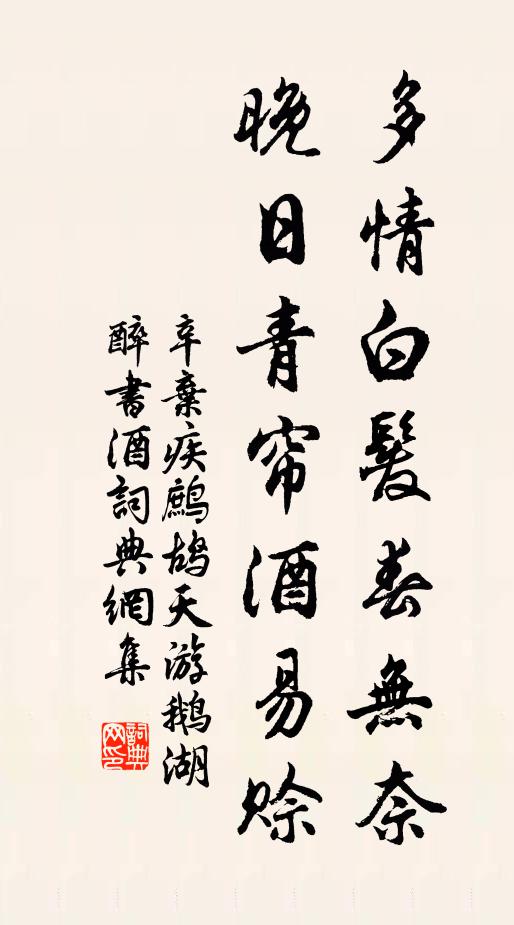 多情白髮春無奈
晚日青帘酒易賒
辛棄疾鷓鴣天游鵝湖
醉書酒詞典網集
詞典網印